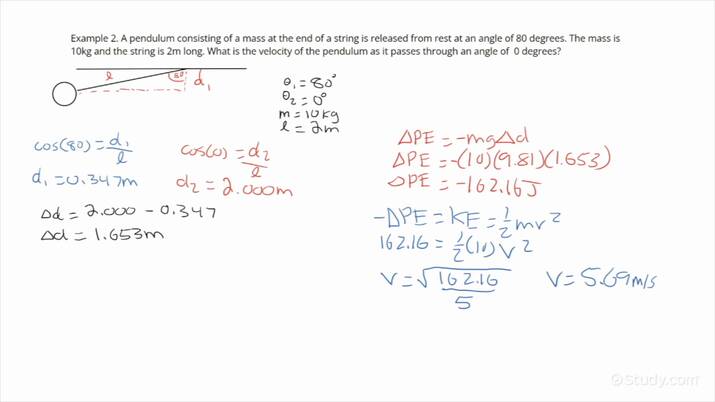 Example 2. A pendulum consisting of a mass at the end of a string is released from rest at an angle of 80 degrees. The mass is
10kg and the string is 2m long. What is the velocity of the pendulum as it passes through an angle of 0 degrees?
l 80° d₁
θ₁ = 80°
θ₂ = 0°
m = 10kg
l = 2m
cos(80) = d₁/l
d₁ = 0.347m
cos(0) = d₂/l
d₂ = 2.000m
Δd = 2.000 - 0.347
Δd = 1.653m
ΔPE = -mgΔd
ΔPE = -(10)(9.81)(1.653)
ΔPE = -162.16J
-ΔPE = KE = 1/2 mv²
162.16 = 1/2 (10) V²
V = √162.16/5
V = 5.69m/s
Study.com